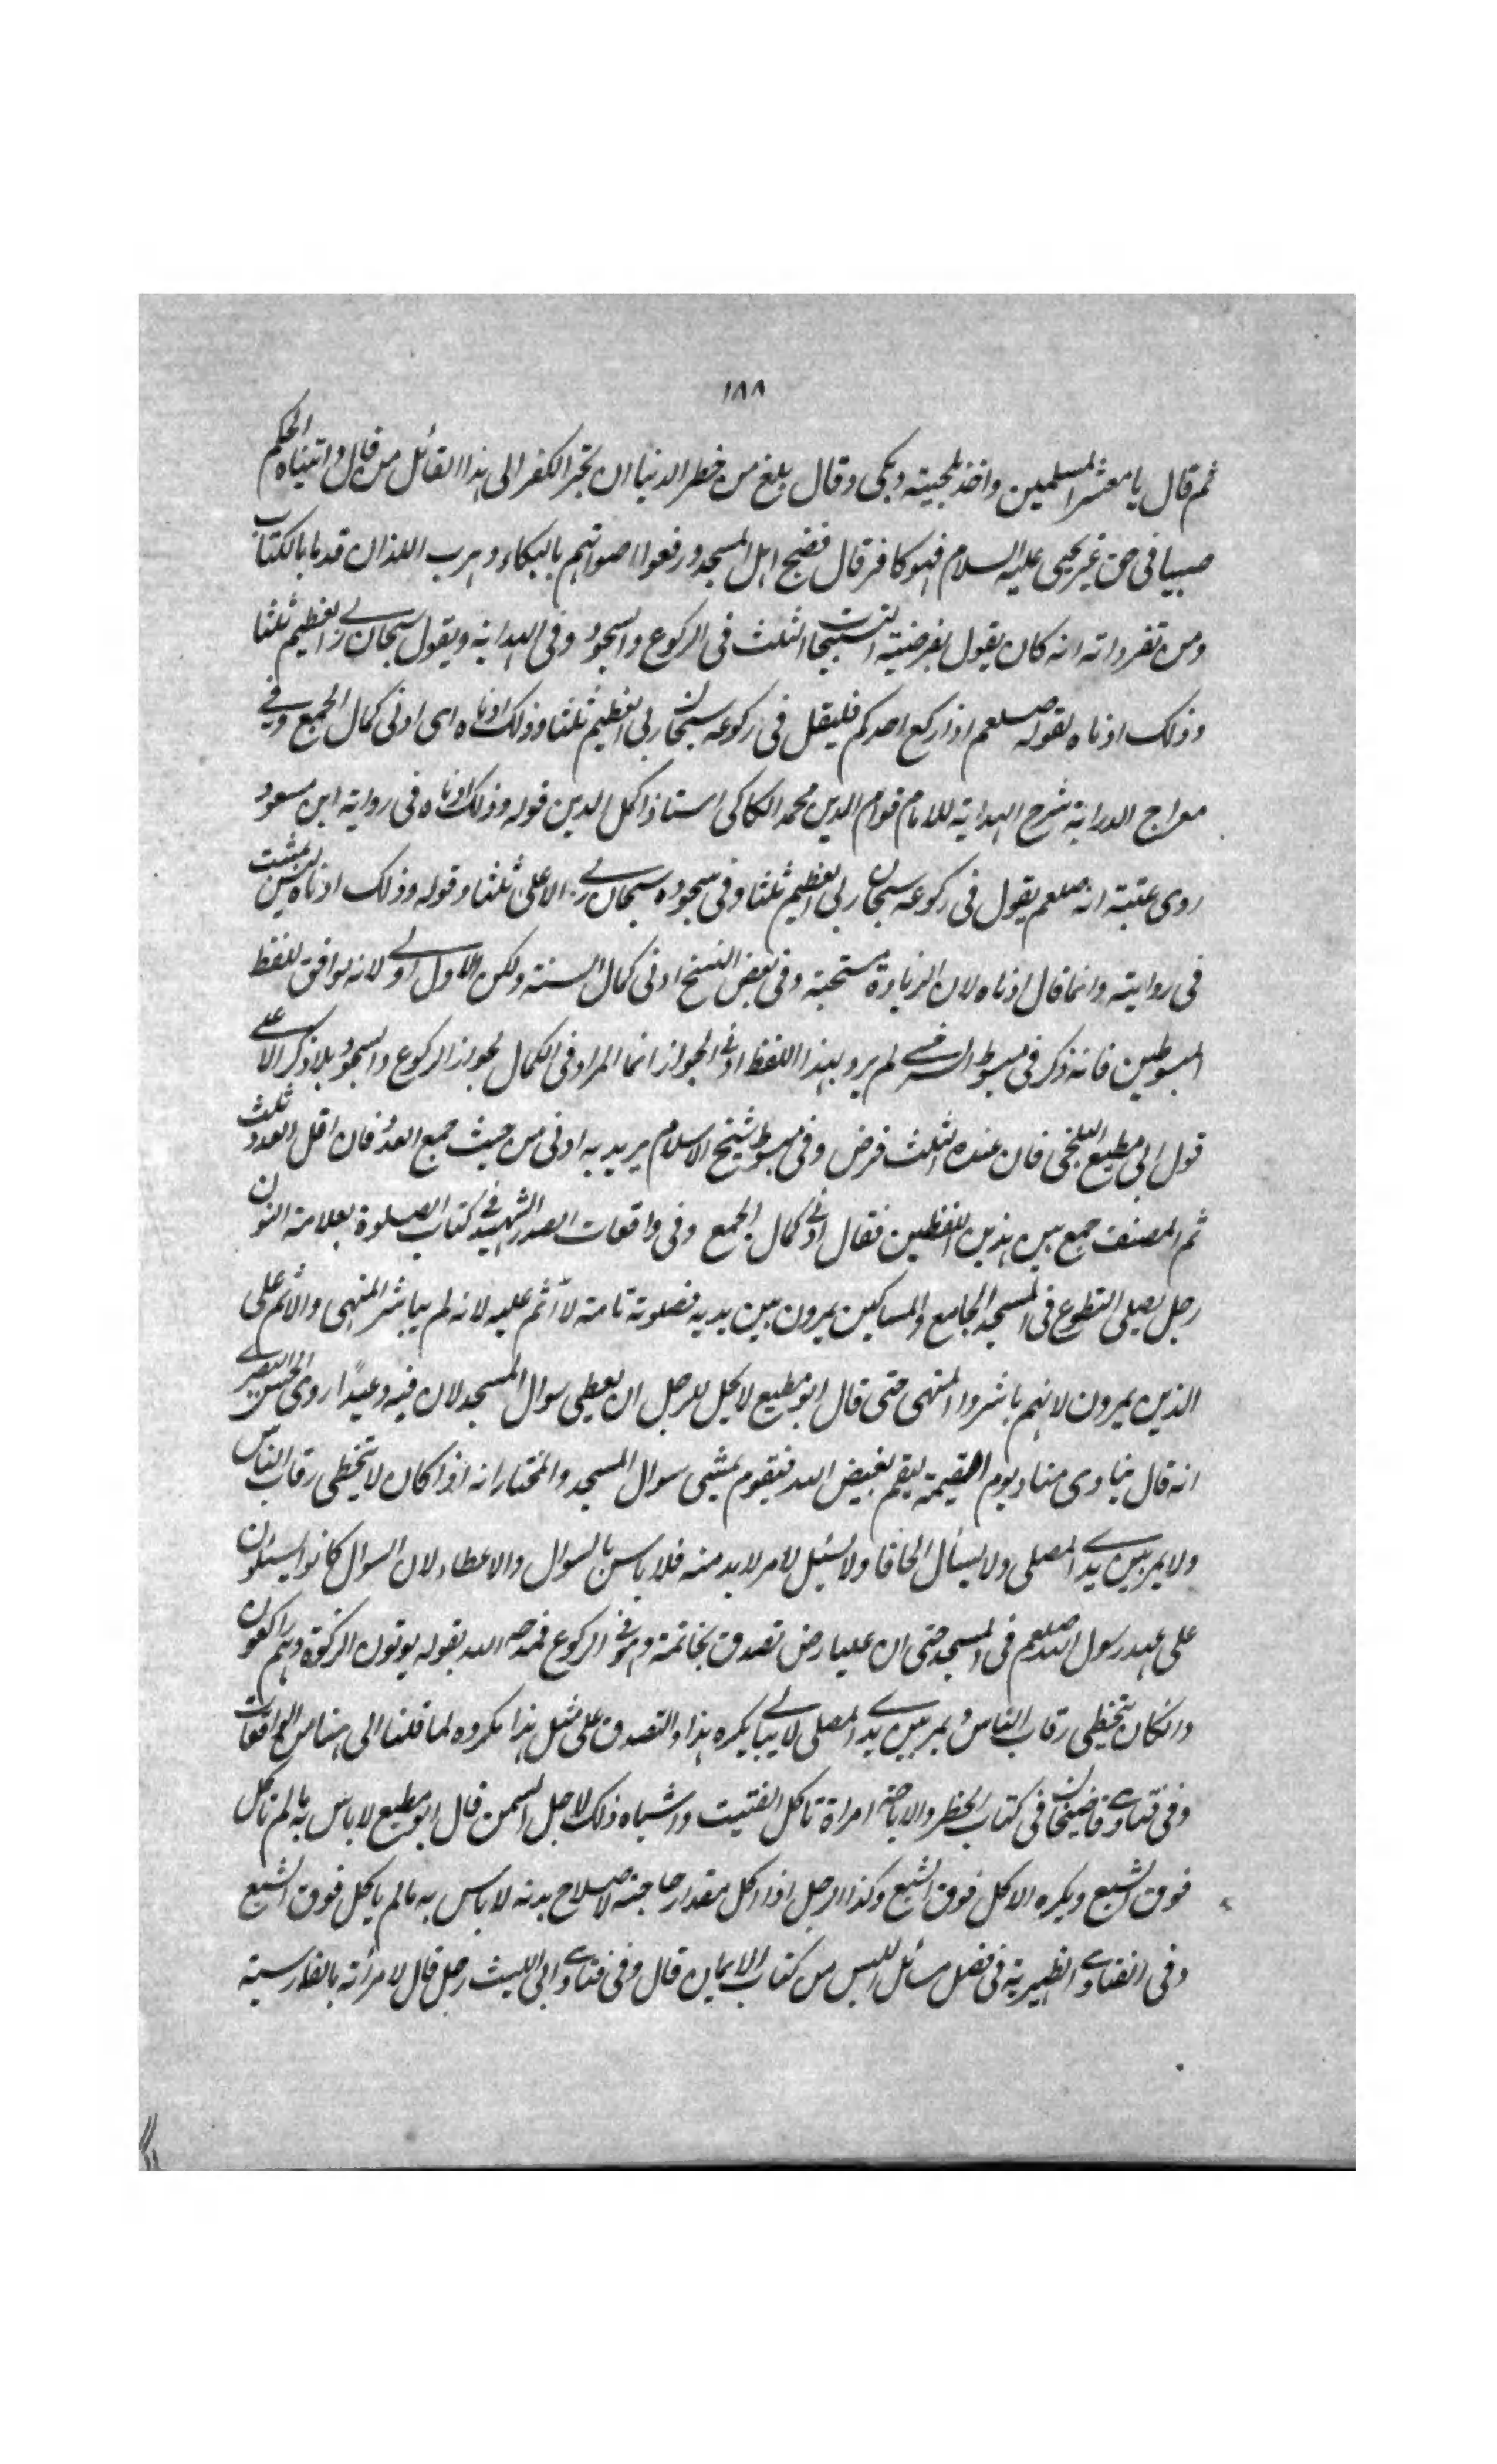 ١٨٨
ثم قال يا معشر المسلمين واخذ بلحيته وبكى وقال بلغ من خطر الدنيا ان تجر الكفر الى هذا القائل من قال واتيناه الحكم
صبيا فى حق غير يحيى عليه السلام فهو كافر قال فضج اهل المسجد ورفعوا اصواتهم بالبكاء وهرب اللذان قدما بالكتاب
ومن تفرداته انه كان يقول بفرضية التسبيحات الثلث فى الركوع والسجود وفى الهداية ويقول سبحان ربى العظيم ثلثا
وذلك ادناه لقوله صلعم اذا ركع احدكم فليقل فى ركوعه سبحان ربى العظيم ثلثا وذلك ادناه اى ادنى كمال الجمع وفى
معراج الدراية شرح الهداية للامام قوام الدين محمد الكاكى استاذ اكمل الدين قوله وذلك ادناه فى رواية ابن مسعود
روى عتبة انه صلعم يقول فى ركوعه سبحان ربى العظيم ثلثا وفى سجوده سبحان ربى الاعلى ثلثا وقوله وذلك ادناه ليس بمثبت
فى روايته وانما قال ادناه لان الزيادة مستحبة وفى بعض النسخ ادنى كمال السنة ولكن الاول اولى لانه يوافق لفظ
المبسوطين فانه ذكر فى مبسوط السرخسى لم يرو بهذا اللفظ ادنى الجواز انما المراد فى الكمال لجواز الركوع والسجود بلا ذكر الا على
قول ابى مطيع البلخى فان عنده الثلث فرض وفى مبسوط شيخ الاسلام يريد به ادنى من حيث جمع العدد فان اقل العدد ثلث
ثم المصنف جمع بين هذين اللفظين فقال ادنى كمال الجمع وفى واقعات الصدر الشهيد فى كتاب الصلوة بعلامة النون
رجل يصلى التطوع فى المسجد الجامع والمساكين يمرون بين يديه فصلوته تامة لا اثم عليه لانه لم يباشر المنهى والاثم على
الذين يمرون لانهم باشروا المنهى حتى قال ابو مطيع لا يحل للرجل ان يعطى سوال المسجد لان فيه وعيدًا روى الحسن البصرى
انه قال ينادى مناد يوم القيمة ليقم بغيض الله فيقوم بمشيى سوال المسجد والمختار انه اذا كان لا يتخطى رقاب الناس
ولا يمر بين يدى المصلى ولا يسأل الحافا ولا يسئل لامر لا بد منه فلا باس بالسوال والاعطاء لان السوال كانوا يسئلون
على عهد رسول الله صلعم فى المسجد حتى ان عليا رض تصدق بخاتمة وهو فى الركوع فمدحه الله بقوله يوتون الزكوة وهم راكعون
وانكان يتخطى رقاب الناس ويمر بين يدى المصلى لا يبالى يكره هذا والتصدق على مثل هذا مكروه لما قلنا الى هنا من الواقعات
وفى فتاوى قاضيخان فى كتاب الحظر والاباحة امراة تاكل الفتيت واشباه ذلك لاجل السمن قال ابو مطيع لا باس به ما لم تاكل
فوق الشبع ويكره الاكل فوق الشبع وكذا الرجل اذا اكل مقدار حاجته لاصلاح بدنه لا باس به ما لم ياكل فوق الشبع
وفى الفتاوى الظهيرية فى فصل مسائل اللبس من كتاب الايمان قال وفى فتاوى ابى الليث رجل قال لامرأته بالفارسية